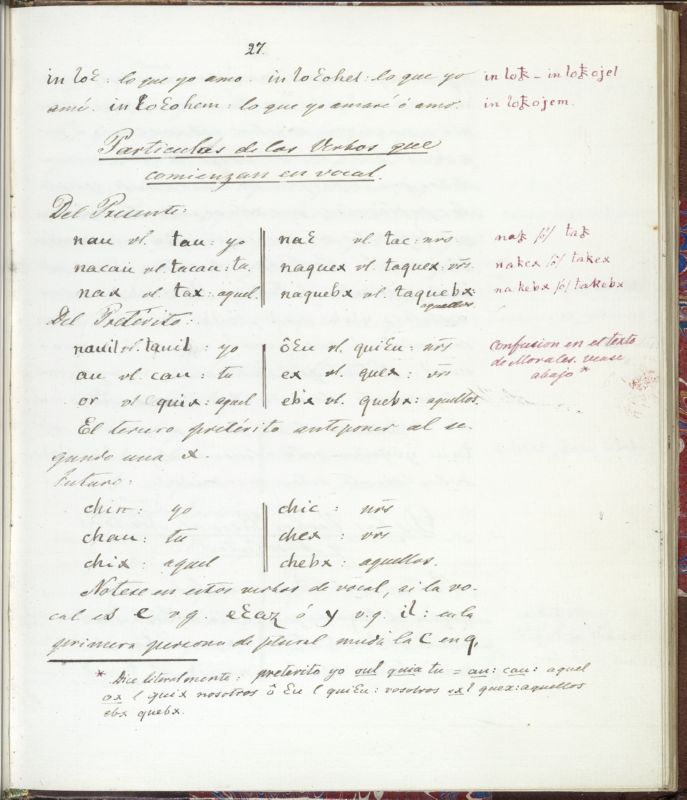 27.
in loꜫ: lo que yo amo. in loꜫohel: lo que yo in loꝁ – in loꝁojel
amé. in loꜫohem: lo que yo amaré ó amo. in loꝁojem.
Particulas de los Verbos que
comienzan en vocal.
Del Presente:
nau vl. tau: yo naꜫ vl. tac: nr̃s. naꝁ /ó/ taꝁ
nacau vl. tacau: tu. naquex vl. taquex: vr̃s. nakex /ó/ takex
nax vl. tax: aquel. naquebx vl. taquebx: aquellos nakebx /ó/ takebx
Del Pretérito:
nauil vl. tauil: yo ôꜫu vl. quiꜫu: nr̃s confusion en el texto
au vl. cau: tu ex vl. quex: vr̃s de Morales. vease
or vl quix: aquel ebx vl. quebx: aquellos. abajo *
El tercero pretérito anteponer al se-
gundo una x.
Futuro:
chin: yo chic: nr̃s
chau: tu chex: vr̃s
chix: aquel chebx: aquellos.
Notese en estos verbos de vocal, si la vo-
cal es e v.g. eꜫaz ó y v.g. il: en la
primera persona de plural muda la C en q,
* Dice literalmente: preterito yo xul quia tu = au: cau: aquel
ox l quix nosotros ô ꜫu l quiꜫu: vosotros ex l quex: aquellos
ebx quebx.